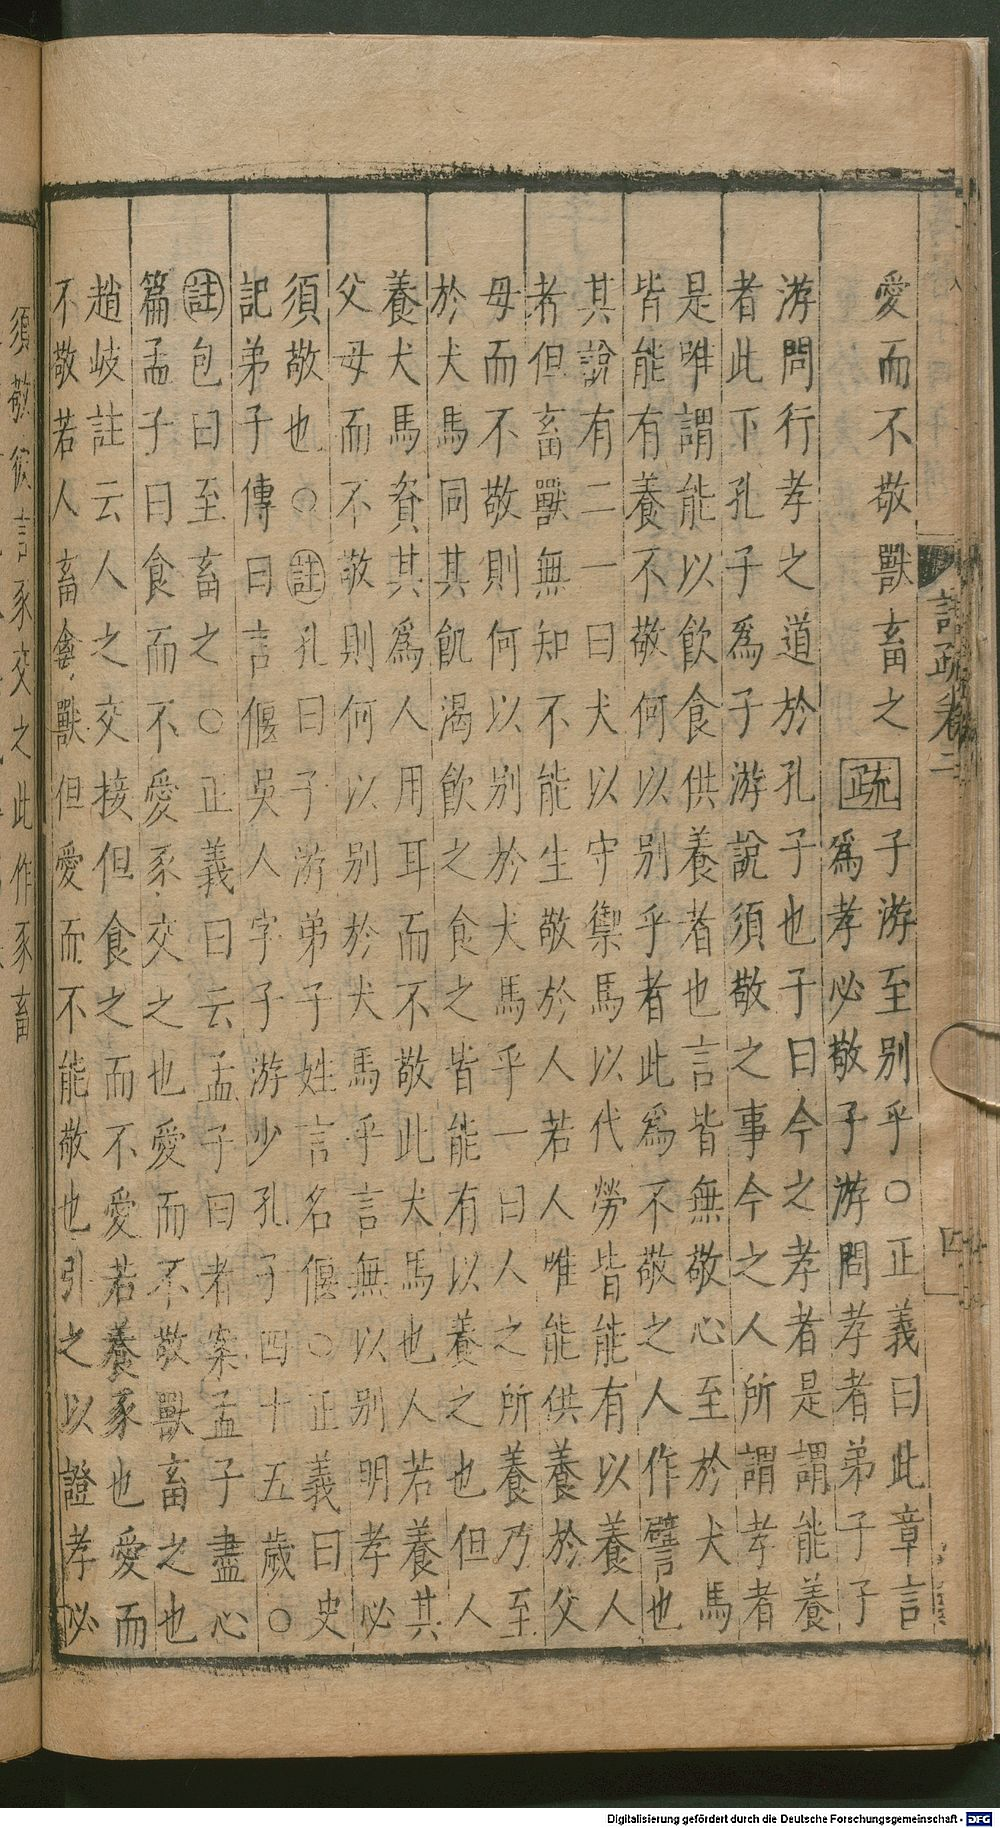 愛而不敬獸畜之疏子游至别乎○正義曰此章言
爲孝必敬子游問孝者弟子子
游問行孝之道於孔子也子曰今之孝者是謂能養
者此下孔子爲子游說須敬之事今之人所謂孝者
是唯謂能以飲食供養者也言皆無敬心至於犬馬
皆能有養不敬何以别乎者此爲不敬之人作譬也
其說有二一曰犬以守禦馬以代勞皆能有以養人
者但畜獸無知不能生敬於人若人唯能供養於父
母而不敬則何以别於犬馬乎一曰人之所養乃至
於犬馬同其飢渴飲之食之皆能有以養之也但人
養犬馬貧其爲人用耳而不敬此犬馬也人若養其
父母而不敬則何以别於犬馬乎言無以别明孝必
須敬也○註孔曰子游弟子姓言名偃○正義曰史
記弟子傳曰言偃吳人字子游少孔子四十五歲○
註包曰至畜之○正義曰云孟子曰者案孟子盡心
篇孟子曰食而不愛豕交之也愛而不敬獸畜之也
趙岐註云人之交接但食之而不愛若養豕也愛而
不敬若人畜禽獸但愛而不能敬也引之以證孝必
註疏卷二
四
須敬彼言豕交之此作豕畜
Digitalisierung gefördert durch die Deutsche Forschungsgemeinschaft - DFG